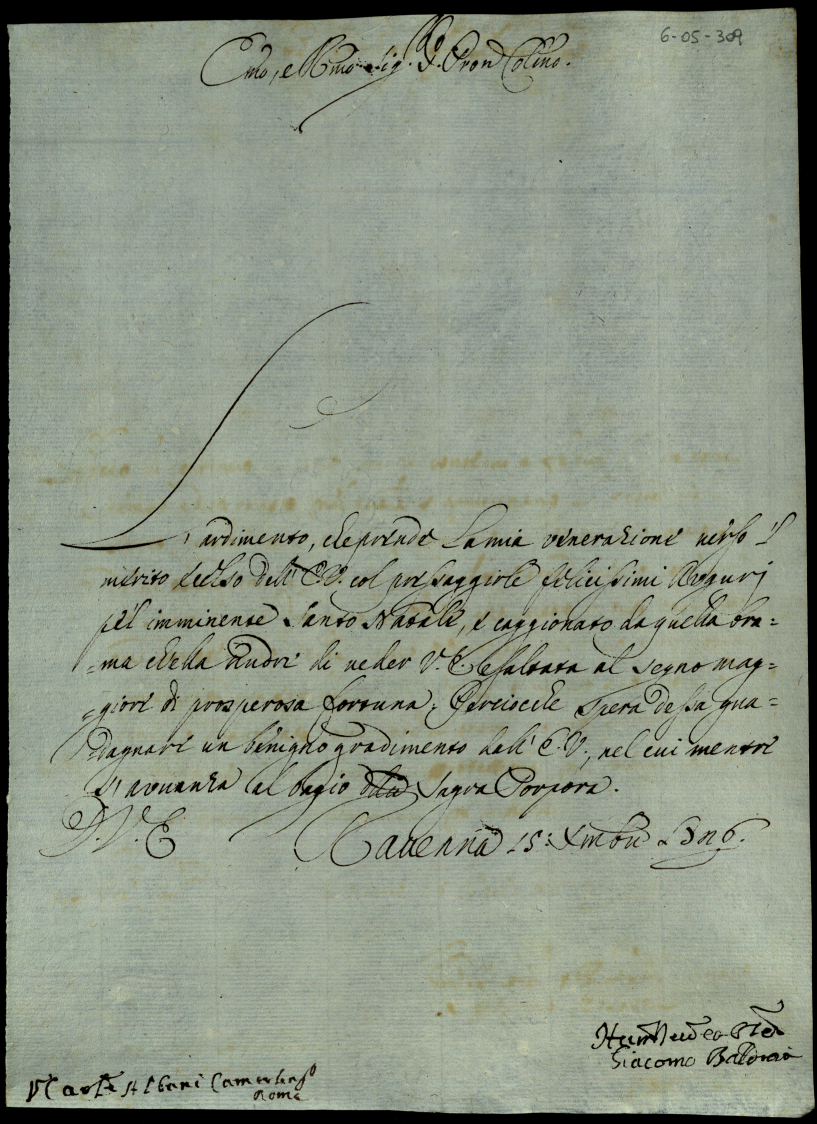 6-05-309
Emo, e Rmo Sig.r P.ron Colmo.
L'ardimento, che prende la mia venerazione verso il
merito eccelso dell' E.V. col pressaggirle felicissimi Auguri
pel imminente Santo Natale, è caggionato da quella bra=
=ma ch'ella nudre di veder V.E. esaltata al segno mag=
=giore di prosperosa fortuna; Perciocche spera dessa gua=
=dagnare un benigno gradimento dell' E.V., nel cui mentre
s'avuanza al bagio della Sagra Porpora.
D. V. E.
Ravenna 15: Xmbre
Giacomo
Albani Camerlengo
Roma